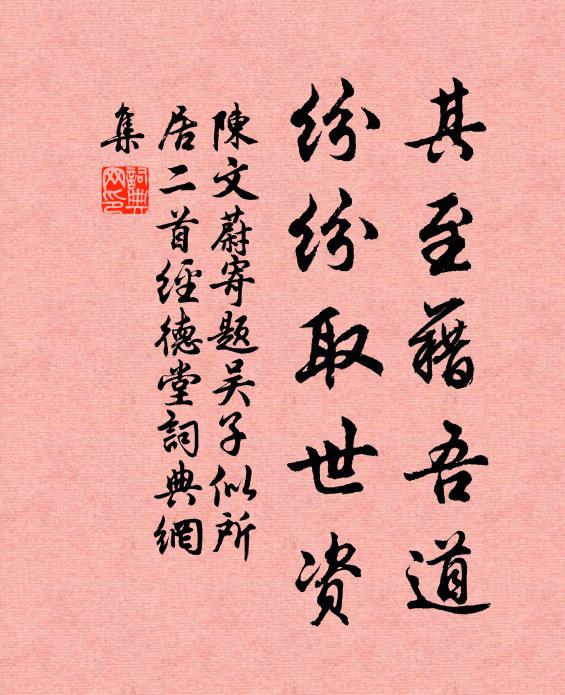 其至藉吾道
纷纷取世资
陳文蔚寄題吴子似所
居二首經德堂詞典網
集
詞典网印